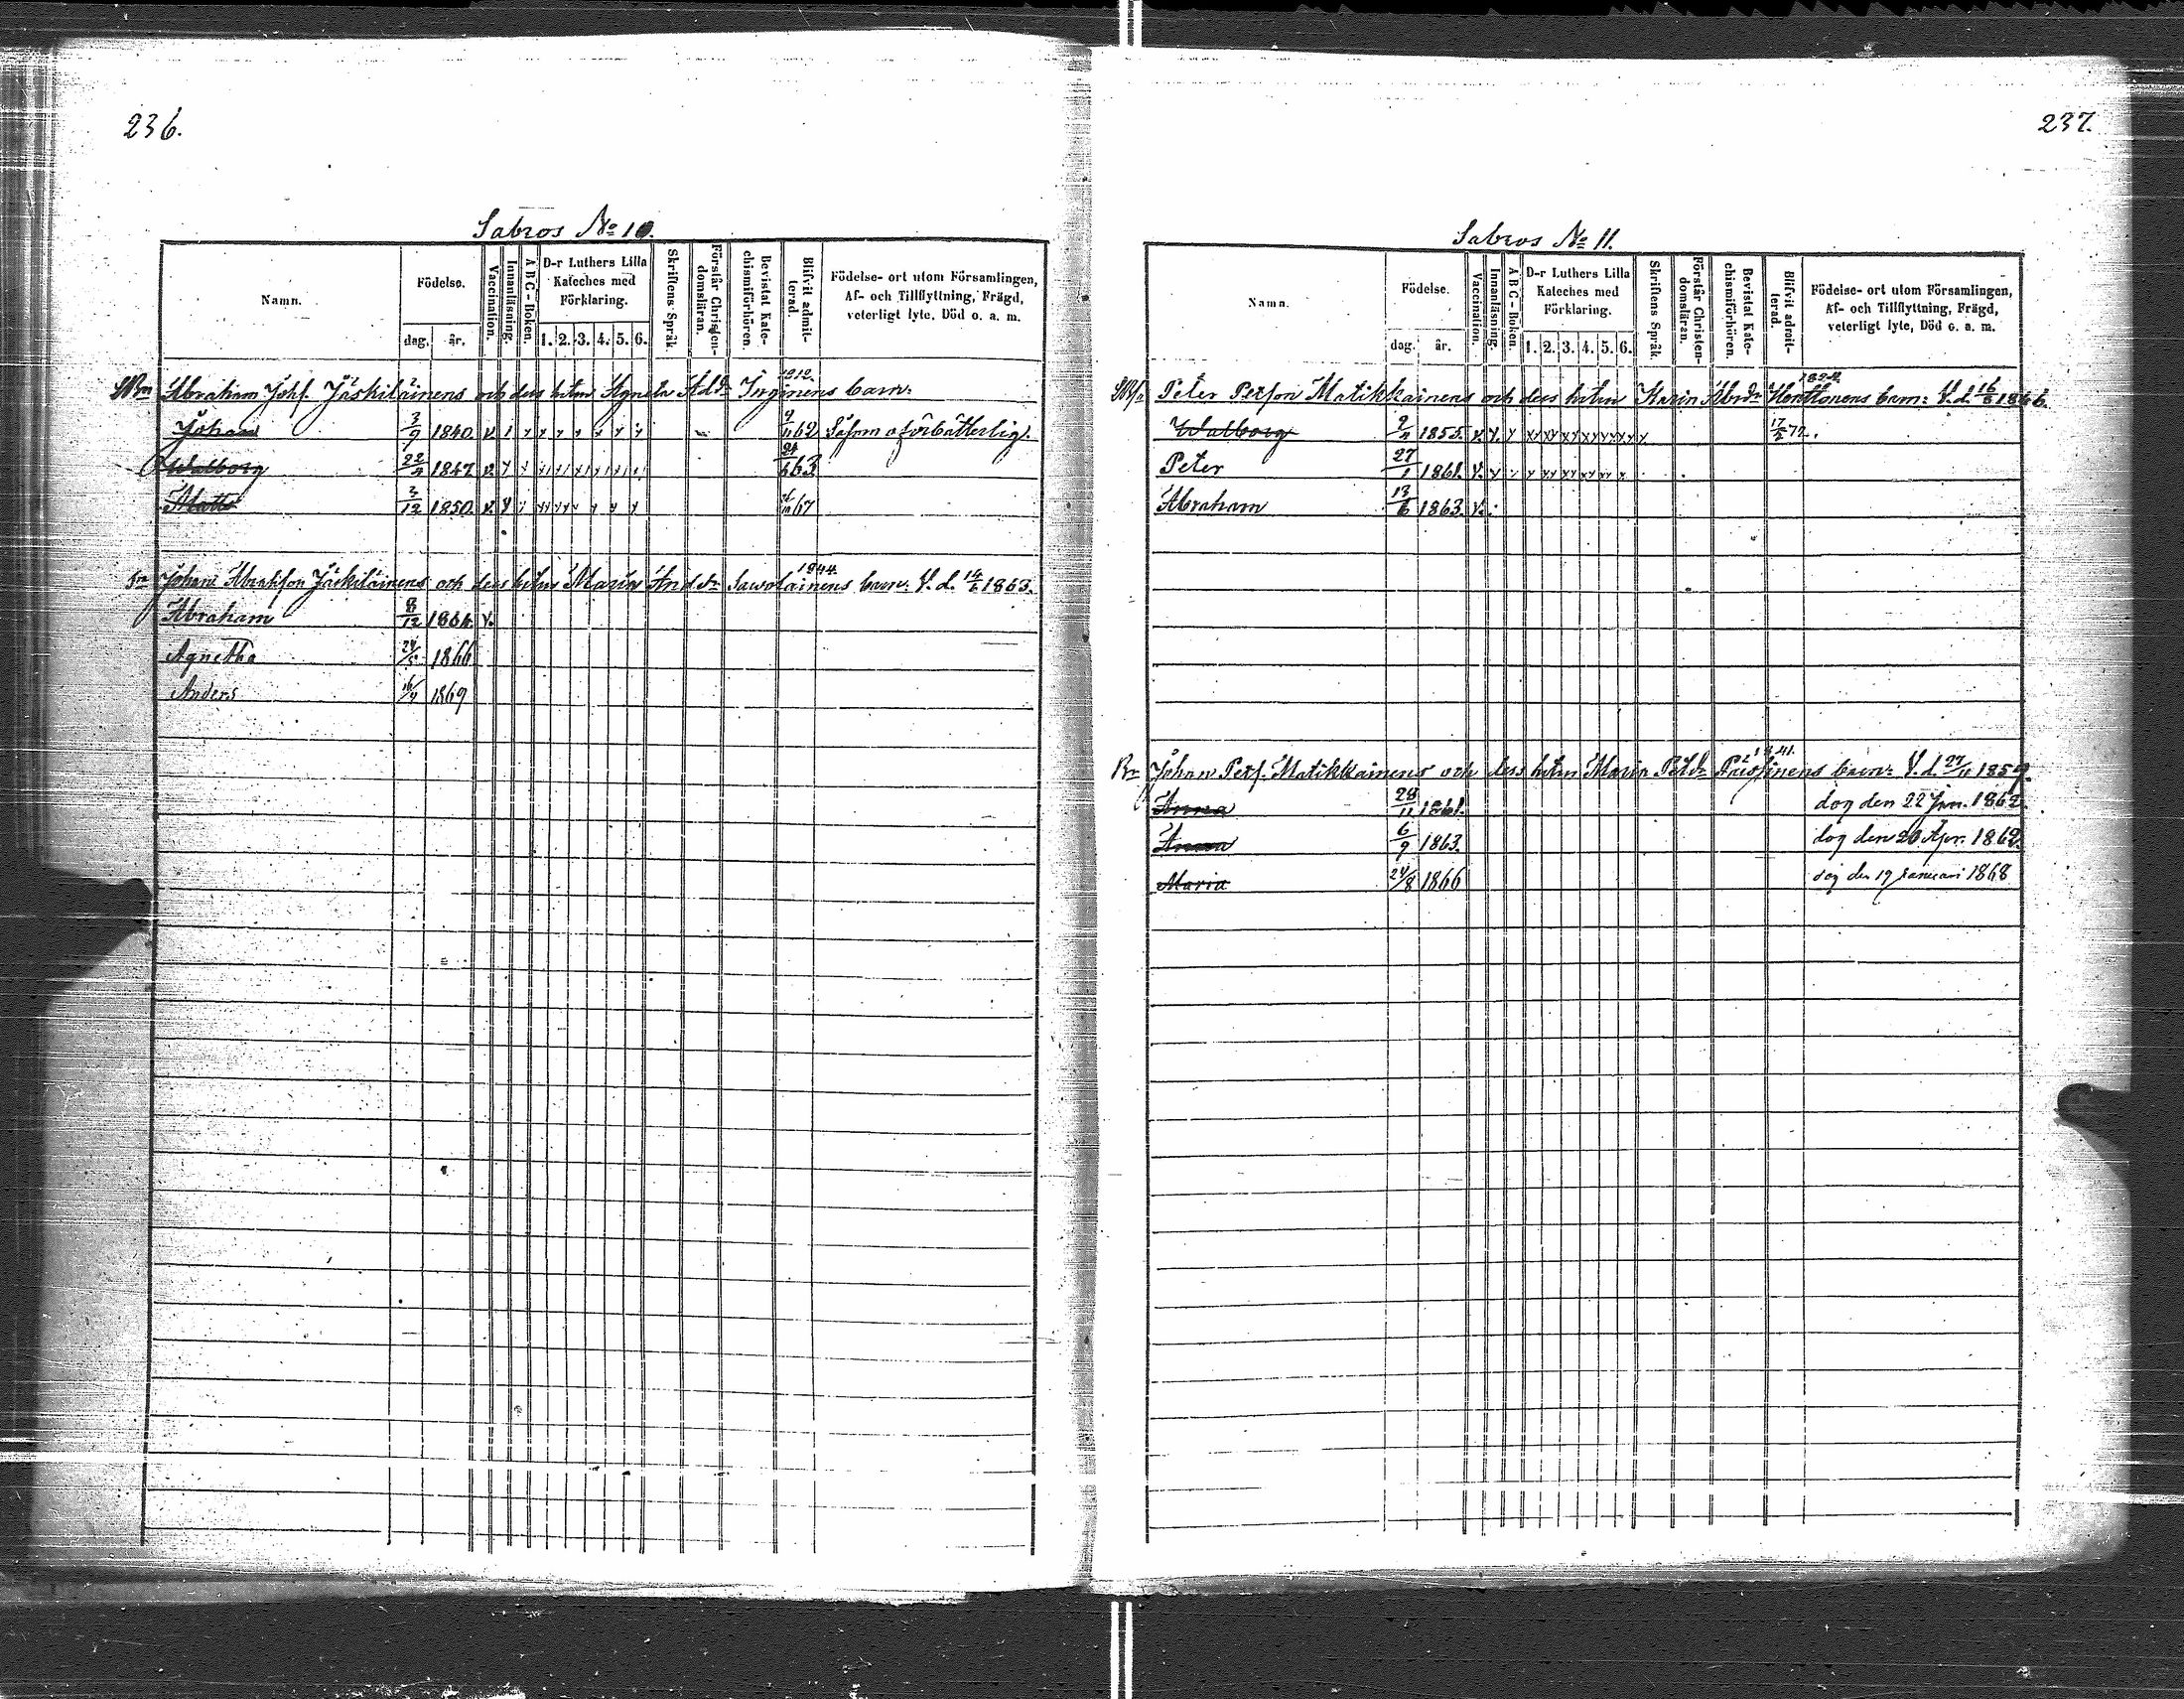 236.
Sabros No 10.
Namn.
Födelse.
dag.
år.
Vaccination.
Innanläsning.
A B C-Boken.
D-r Luthers Lilla
Kateches med
Förklaring.
1. 2. 3. 4. 5. 6.
Skriftens Språk.
Förstår Christen-
domsläran.
Bevistat Kate-
chismiförhören.
Blifvit admit-
terad.
Födelse- ort utom Församlingen,
Af- och Tillflyttning, Frägd,
veterligt lyte, Död o. a. m.
Abraham Johs. Jäskiläinens och dess hustru Agneta Add:r Inginens barn:
Johan 3/9 1840. 62 Såsom oförbätterlig.
Walborg 22/11 1847. 63
Matts 3/12 1850. 67
1844.
Johan Abrahsson Jäskiläinens och dess hustru Maria And:dr Sawolainens barn. V. d. 14/6 1863.
Abraham 8/12 1864. v.
Agnetha 24/5 1866
Anders 16/4 1869
237.
Sabros No 11.
Namn.
Födelse.
dag.
år.
Vaccination.
Innanläsning.
A B C-Boken.
D-r Luthers Lilla
Kateches med
Förklaring.
1. 2. 3. 4. 5. 6.
Skriftens Språk.
Förstår Christen-
domsläran.
Bevistat Kate-
chismiförhören.
Blifvit admit-
terad.
Födelse- ort utom Församlingen,
Af- och Tillflyttning, Frägd,
veterligt lyte, Död o. a. m.
Peter Persson Matikkainens och dess hustru Karin Abr:dr Honttonens barn: V. d. 16/6 1846.
Walborg 2/11 1855. 72.
Peter 27/1 1861. v.
Abraham 13/6 1863. v.
1841.
Johan Pers. Matikkainens och dess hustru Maria Pet:dr barn: V. d. 27/11 1859.
Anna 28/11 1861. dog den 22 Jan. 1862.
Anna 6/9 1863. dog den 20 Apr. 1862.
Maria 24/8 1866 dog den 19 Januari 1868